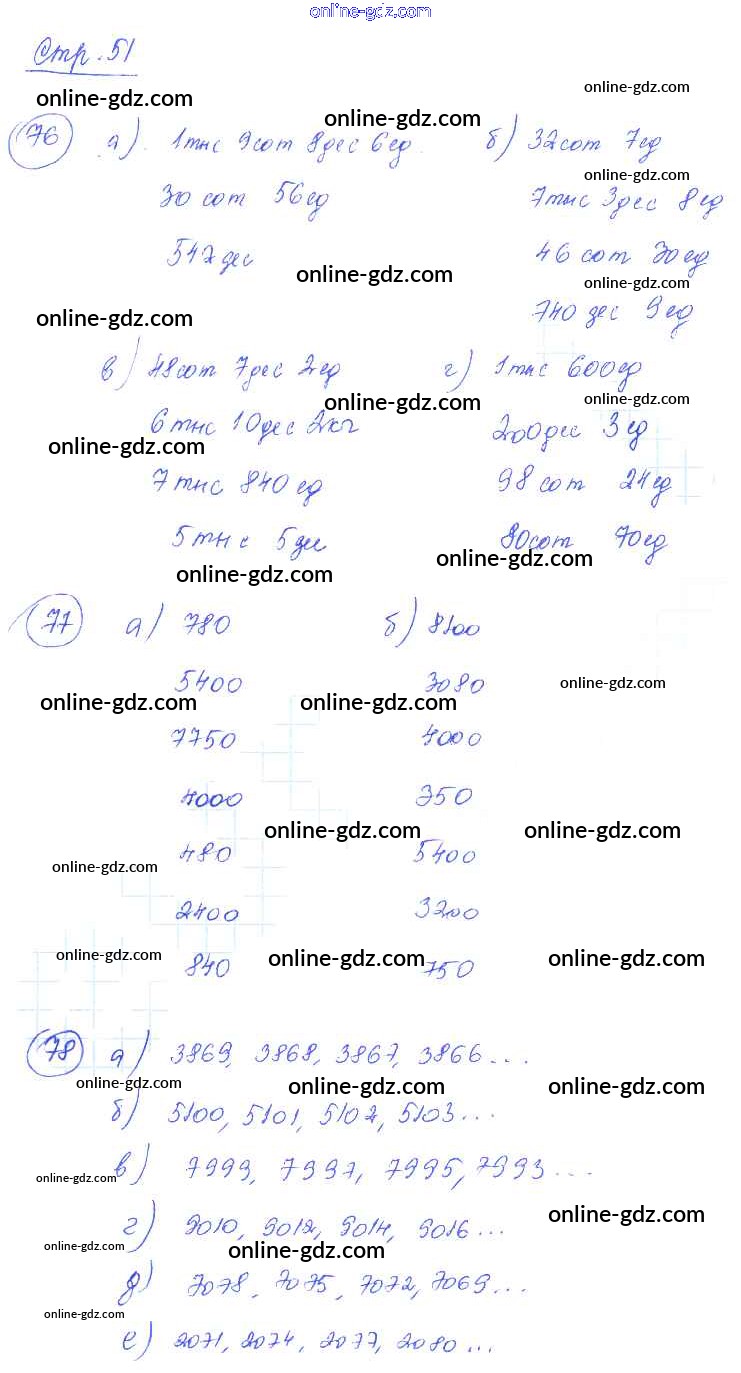 online-gdz.com
Стр. 51
online-gdz.com
online-gdz.com
online-gdz.com
76 а) 1тыс 9сот 8дес 6ед б) 32сот 7ед
online-gdz.com
30 сот 56ед 7тыс 3дес 8ед
547дес 46 сот 30ед
online-gdz.com online-gdz.com
online-gdz.com 740 дес 9ед
в) 48сот 7дес 2ед г) 1тыс 600ед
online-gdz.com online-gdz.com
6тыс 10дес 200дес 3ед
online-gdz.com
7тыс 840ед 98 сот 24ед
5тыс 5дес 80сот 70ед
online-gdz.com
online-gdz.com
77 а) 780 б) 8100
5400 3080
online-gdz.com online-gdz.com online-gdz.com
7750 4000
4000 350
online-gdz.com online-gdz.com
480 5400
online-gdz.com
2400 3200
online-gdz.com online-gdz.com online-gdz.com
840 750
78 а) 3869, 3868, 3867, 3866...
online-gdz.com online-gdz.com online-gdz.com
б) 5100, 5101, 5102, 5103...
в) 7999, 7997, 7995, 7993...
online-gdz.com
г) 9010, 9012, 9014, 9016...
online-gdz.com
online-gdz.com online-gdz.com
д) 7078, 7075, 7072, 7069...
online-gdz.com
е) 2071, 2074, 2077, 2080...